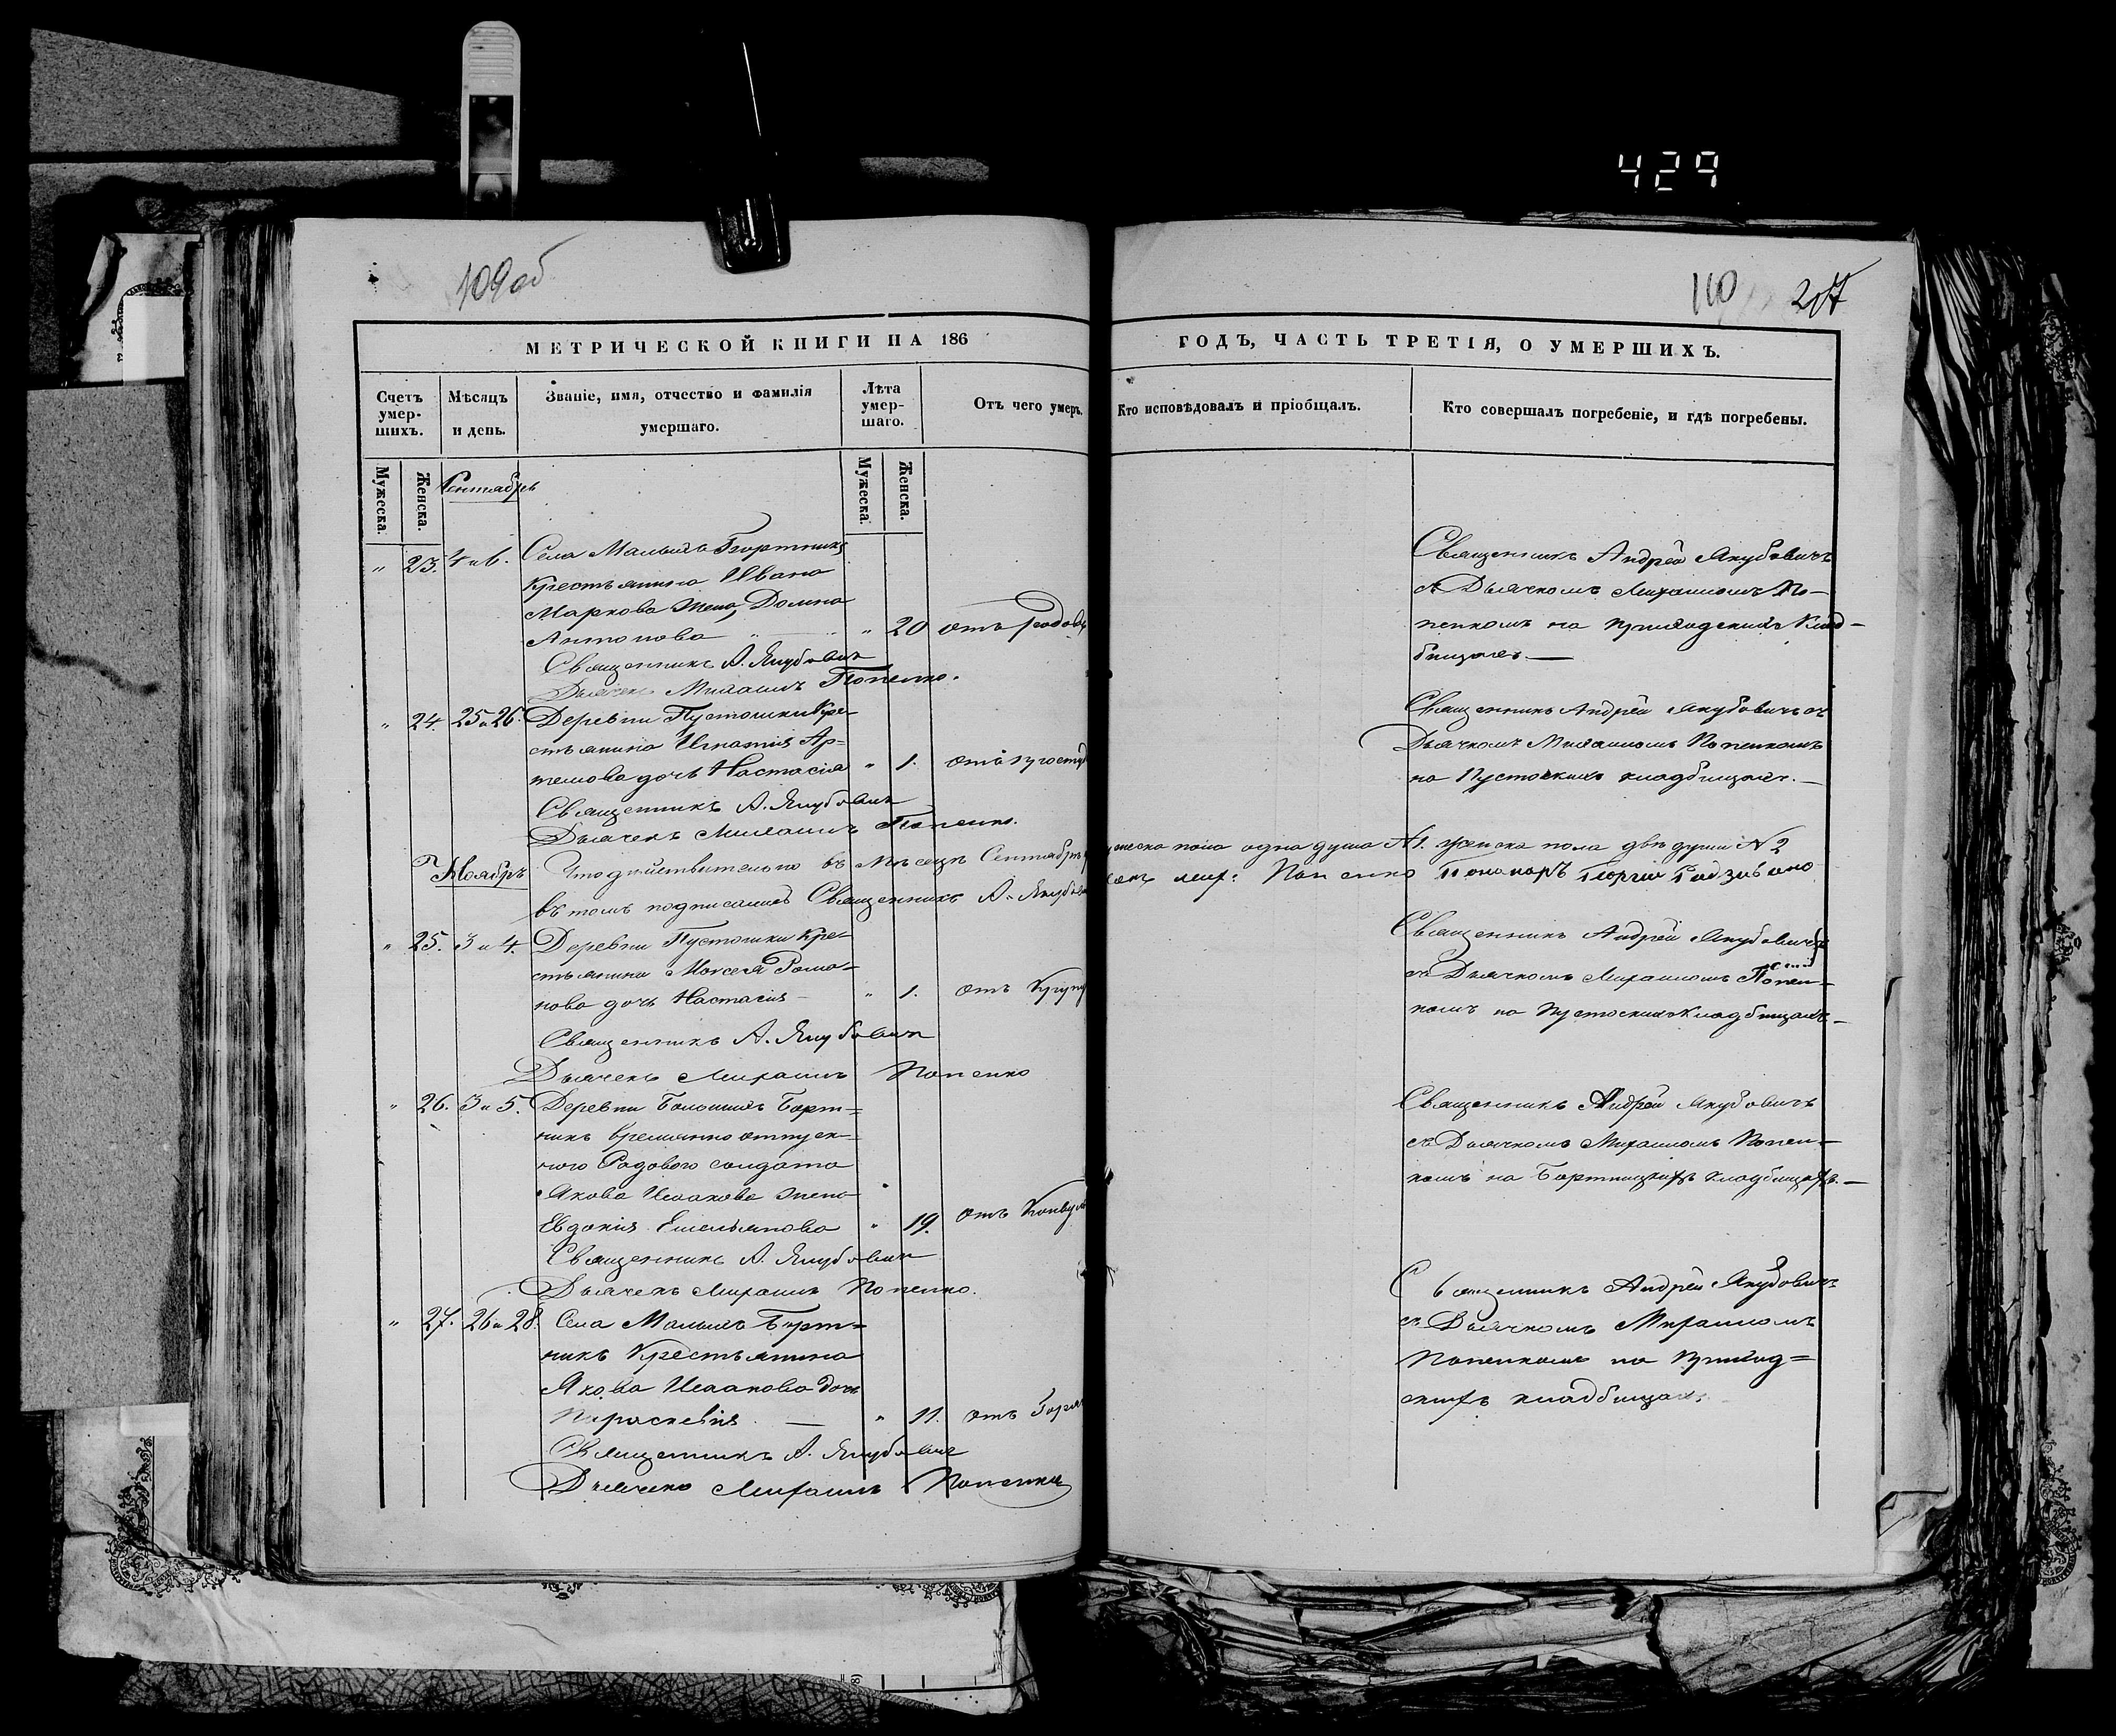 429
109об
110
МЕТРИЧЕСКОЙ КНИГИ НА 186
ГОДЪ, ЧАСТЬ ТРЕТІЯ, О УМЕРШИХЪ.
Счетъ умер-шихъ.
Мѣсяцъ и день.
Званіе, имя, отчество и фамилія умершаго.
Лѣта умер-шаго.
Отъ чего умеръ.
Кто исповѣдовалъ и пріобщалъ.
Кто совершалъ погребеніе, и гдѣ погребены.
Мужеска.
Женска.
Сентябрь
Мужеска.
Женска.
" 23. 4 и 6. Села Малыхъ Бортникъ
Крестьянина Ивана
Маркова жена, Домна
Антонова " " " 20 отъ родовъ
Священникъ А. Якубовичъ
Дьячекъ Михаилъ Попенко.
Священникъ Андрей Якубовичъ
съ Дьячкомъ Михаиломъ По-
пенкомъ на приходскихъ клад-
бищахъ.—
" 24. 25 и 26. Деревни Пустошки Кре-
стьянина Игнатія Ар-
темова дочь Настасія " 1. отъ простуд
Священникъ А. Якубовичъ
Дьячекъ Михаилъ Попенко.
Священникъ Андрей Якубовичъ съ
Дьячкомъ Михаиломъ Попенкомъ
на Пустоскихъ кладбищахъ.—
Что дѣйствительно въ Мѣсяцѣ Сентябрѣ
ужеска пола одна душа №1. женска пола двѣ души №2
Ноябрь
въ томъ подписались Священникъ А. Якубов
Попенко Пономарь Георгій
" 25. 3 и 4. Деревни Пустошки Кре-
стьянина Моисея Рома-
нова дочь Настасія - " 1. отъ Круп
Священникъ А. Якубовичъ
Дьячекъ Михаилъ Попенко
Священникъ Андрей Якубовичъ
съ Дьячкомъ Михаиломъ Попен-
комъ на Пустоскихъ кладбищахъ—
" 26. 3 и 5. Деревни Большихъ Борт=
никъ временно отпуск-
ного Рядового солдата
Якова Исаакова жена
Евдокія Емельянова " 19. отъ Конвул
Священникъ А. Якубовичъ
Дьячекъ Михаилъ Попенко.
Священникъ Андрей Якубовичъ
съ Дьячкомъ Михаиломъ Попен-
комъ на Бортницкихъ кладбищахъ.—
" 27. 26 и 28. Села Малыхъ Борт=
никъ Крестьянина
Якова Исаакова дочь
Параскевія — " 11. отъ Горяч
Священникъ А. Якубовичъ
Дьячекъ Михаилъ Попенко
Священникъ Андрей Якубовичъ
съ Дьячкомъ Михаиломъ
Попенкомъ на Приход=
скихъ кладбищахъ.